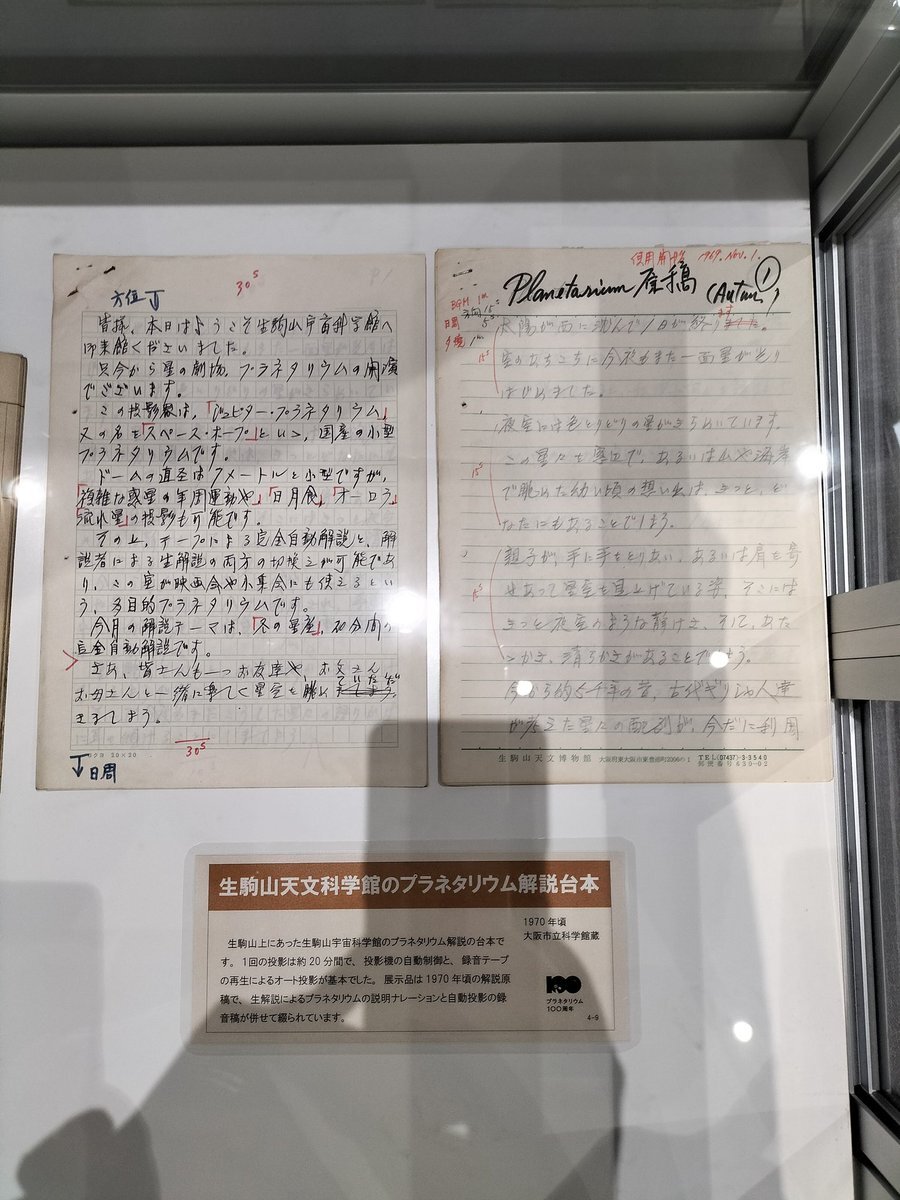 30ˢ
方位↓
皆様、本日はようこそ生駒山宇宙科学館へ
御来館くださいました。
只今から星の劇場、プラネタリウムの開演
でございます。
この投影機は、「ジュピター・プラネタリウム」
又の名を「スペース・ホープ」といい、国産の小型
プラネタリウムです。
ドームの直径は7メートルと小型ですが、
複雑な惑星の年周運動や、「日月食」「オーロラ」
「流れ星」の投影も可能です。
その上、テープによる完全自動解説と、解
説者による生解説の両方の切換えが可能であ
り、この室が映画会や小集会にも使えるとい
う、多目的プラネタリウムです。
今月の解説テーマは、「冬の星座」、20分間の
完全自動解説です。
さあ、皆さんも一つお友達や、お父さん、
お母さんと一緒に楽しく星空を眺め
ていただ
きましょう。
30ˢ
コクヨ 20×20
↓日周
使用開始 1969. Nov. 1.
Planetarium 原稿 (Autum) ①
BGM 1m
方向 15ˢ
日周 5ˢ
夕焼 1m
太陽が西に沈んで1日が終りました。
ます
15ˢ
空のあちこちに今夜もまた一面星が光り
はじめました。
夜空には色とりどりの星がきらめいています。
この星々を窓辺で、あるいは山や海岸
15ˢ
で眺めた幼い頃の想い出は、きっと、ど
なたにもあることでしょう。
親子が、手に手をとりあい、あるいは肩を寄
15ˢ
せあって星空を見上げている姿、そこには
きっと夜空のような静けさ、そして、あた
たかさ、清らかさがあることでしょう。
今から約5千年の昔、古代ギリシャ人達
が考えた星々の配列が、今だに利用
生駒山天文博物館 大阪府東大阪市東豊浦町2006の1 TEL(07437)-3-3540
郵便番号 630-02
生駒山天文科学館のプラネタリウム解説台本
1970年頃
大阪市立科学館蔵
生駒山上にあった生駒山宇宙科学館のプラネタリウム解説の台本で
す。1回の投影は約20分間で、投影機の自動制御と、録音テープ
の再生によるオート投影が基本でした。展示品は1970年頃の解説原
稿で、生解説によるプラネタリウムの説明ナレーションと自動投影の録
音稿が併せて綴られています。
100
プラネタリウム
100周年
4-9